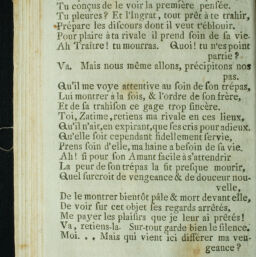 Tu conçus de le voir la première pensée.
Tu pleures? Et l'Ingrat, tout prêt à te trahir,
Prépare les discours dont il veut t'éblouir.
Pour plaire à ta rivale il prend soin de sa vie.
Ah Traître! tu mourras. Quoi! tu n'es point
partie?
Va. Mais nous même allons, précipitons nos
pas.
Qu'il me voye attentive au soin de son trépas,
Lui montrer à la fois, & l'ordre de son frère,
Et de sa trahison ce gage trop sincère.
Toi, Zatime, retiens ma rivale en ces lieux,
Qu'il n'ait, en expirant, que ses cris pour adieux.
Qu'elle soit cependant fidellement servie,
Prens soin d'elle, ma haine a besoin de sa vie.
Ah! si pour son Amant facile à s'attendrir
La peur de son trépas la fit presque mourir,
Quel surcroit de vengeance & de douceur nou-
velle,
De le montrer bientôt pâle & mort devant elle,
De voir sur cet objet ses regards arrêtés,
Me payer les plaisirs que je leur ai prêtés!
Va, retiens-la. Sur-tout garde bien le silence.
Moi... Mais qui vient ici différer ma ven-
geance?